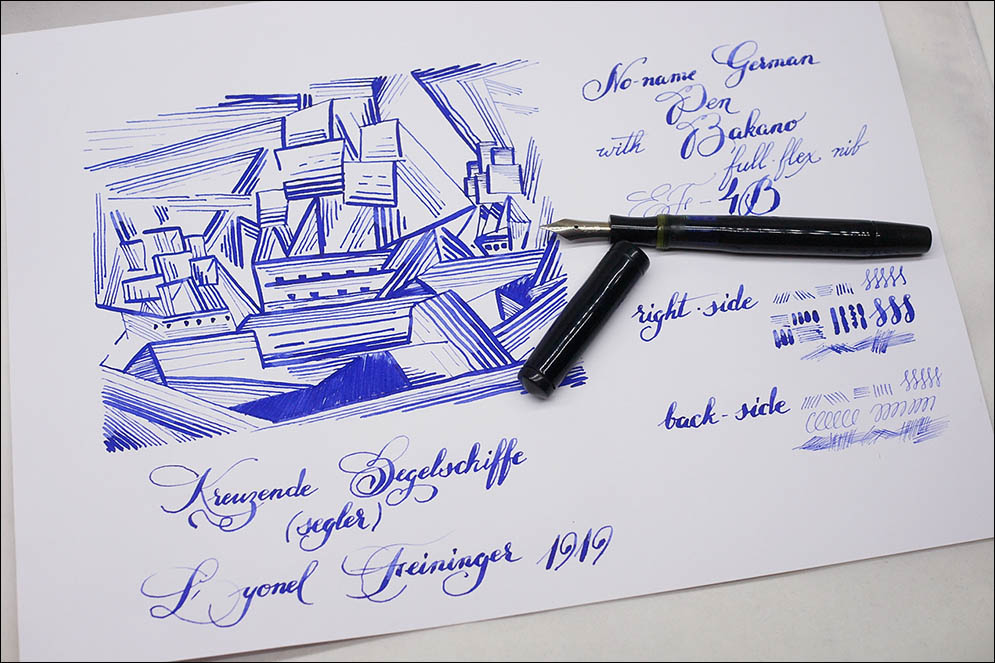 No-name German
Pen
with Bakano
full-flex nib
EF-4B
right-side
back-side
Kreuzende Segelschiffe
(segler)
Lyonel Freininger 1919